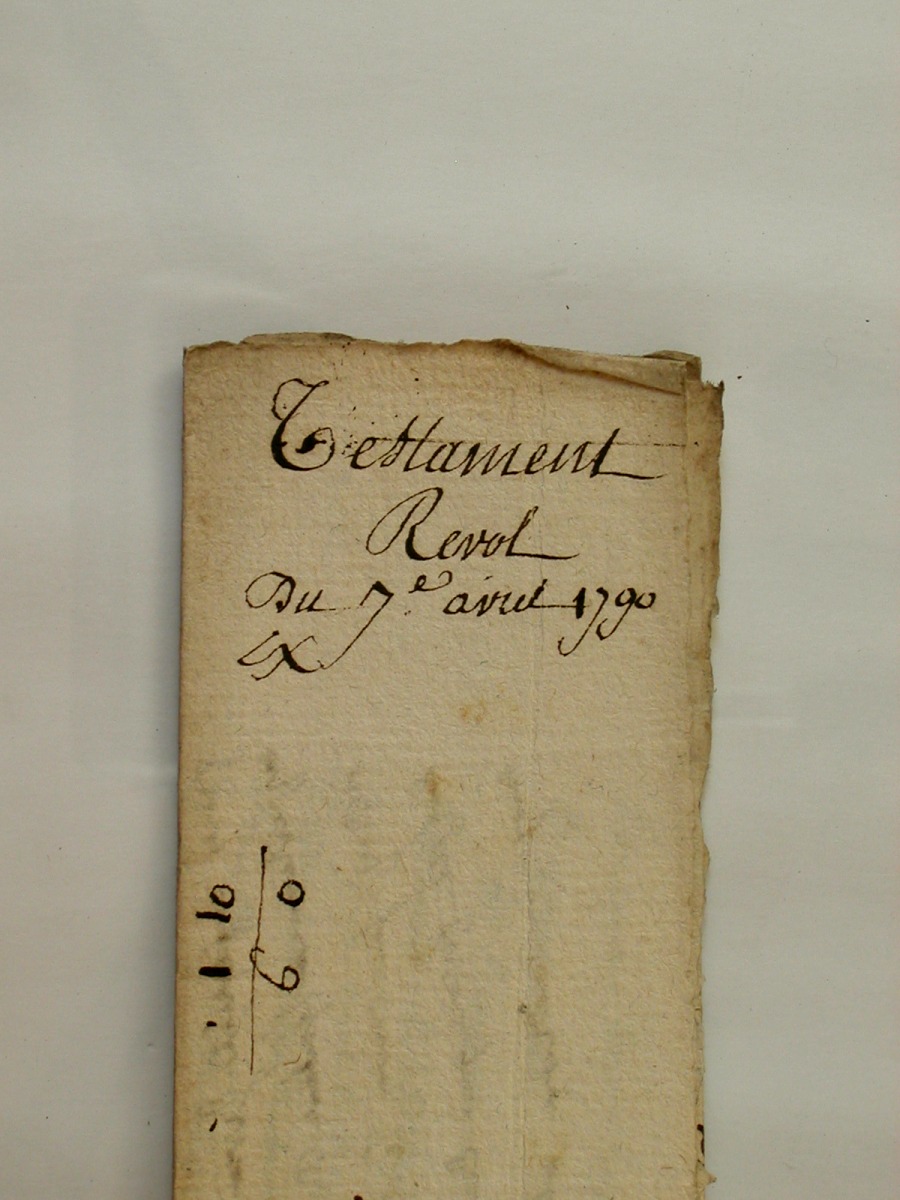 Testament
Revol
Du 7e avril 1790
1 10
6 0